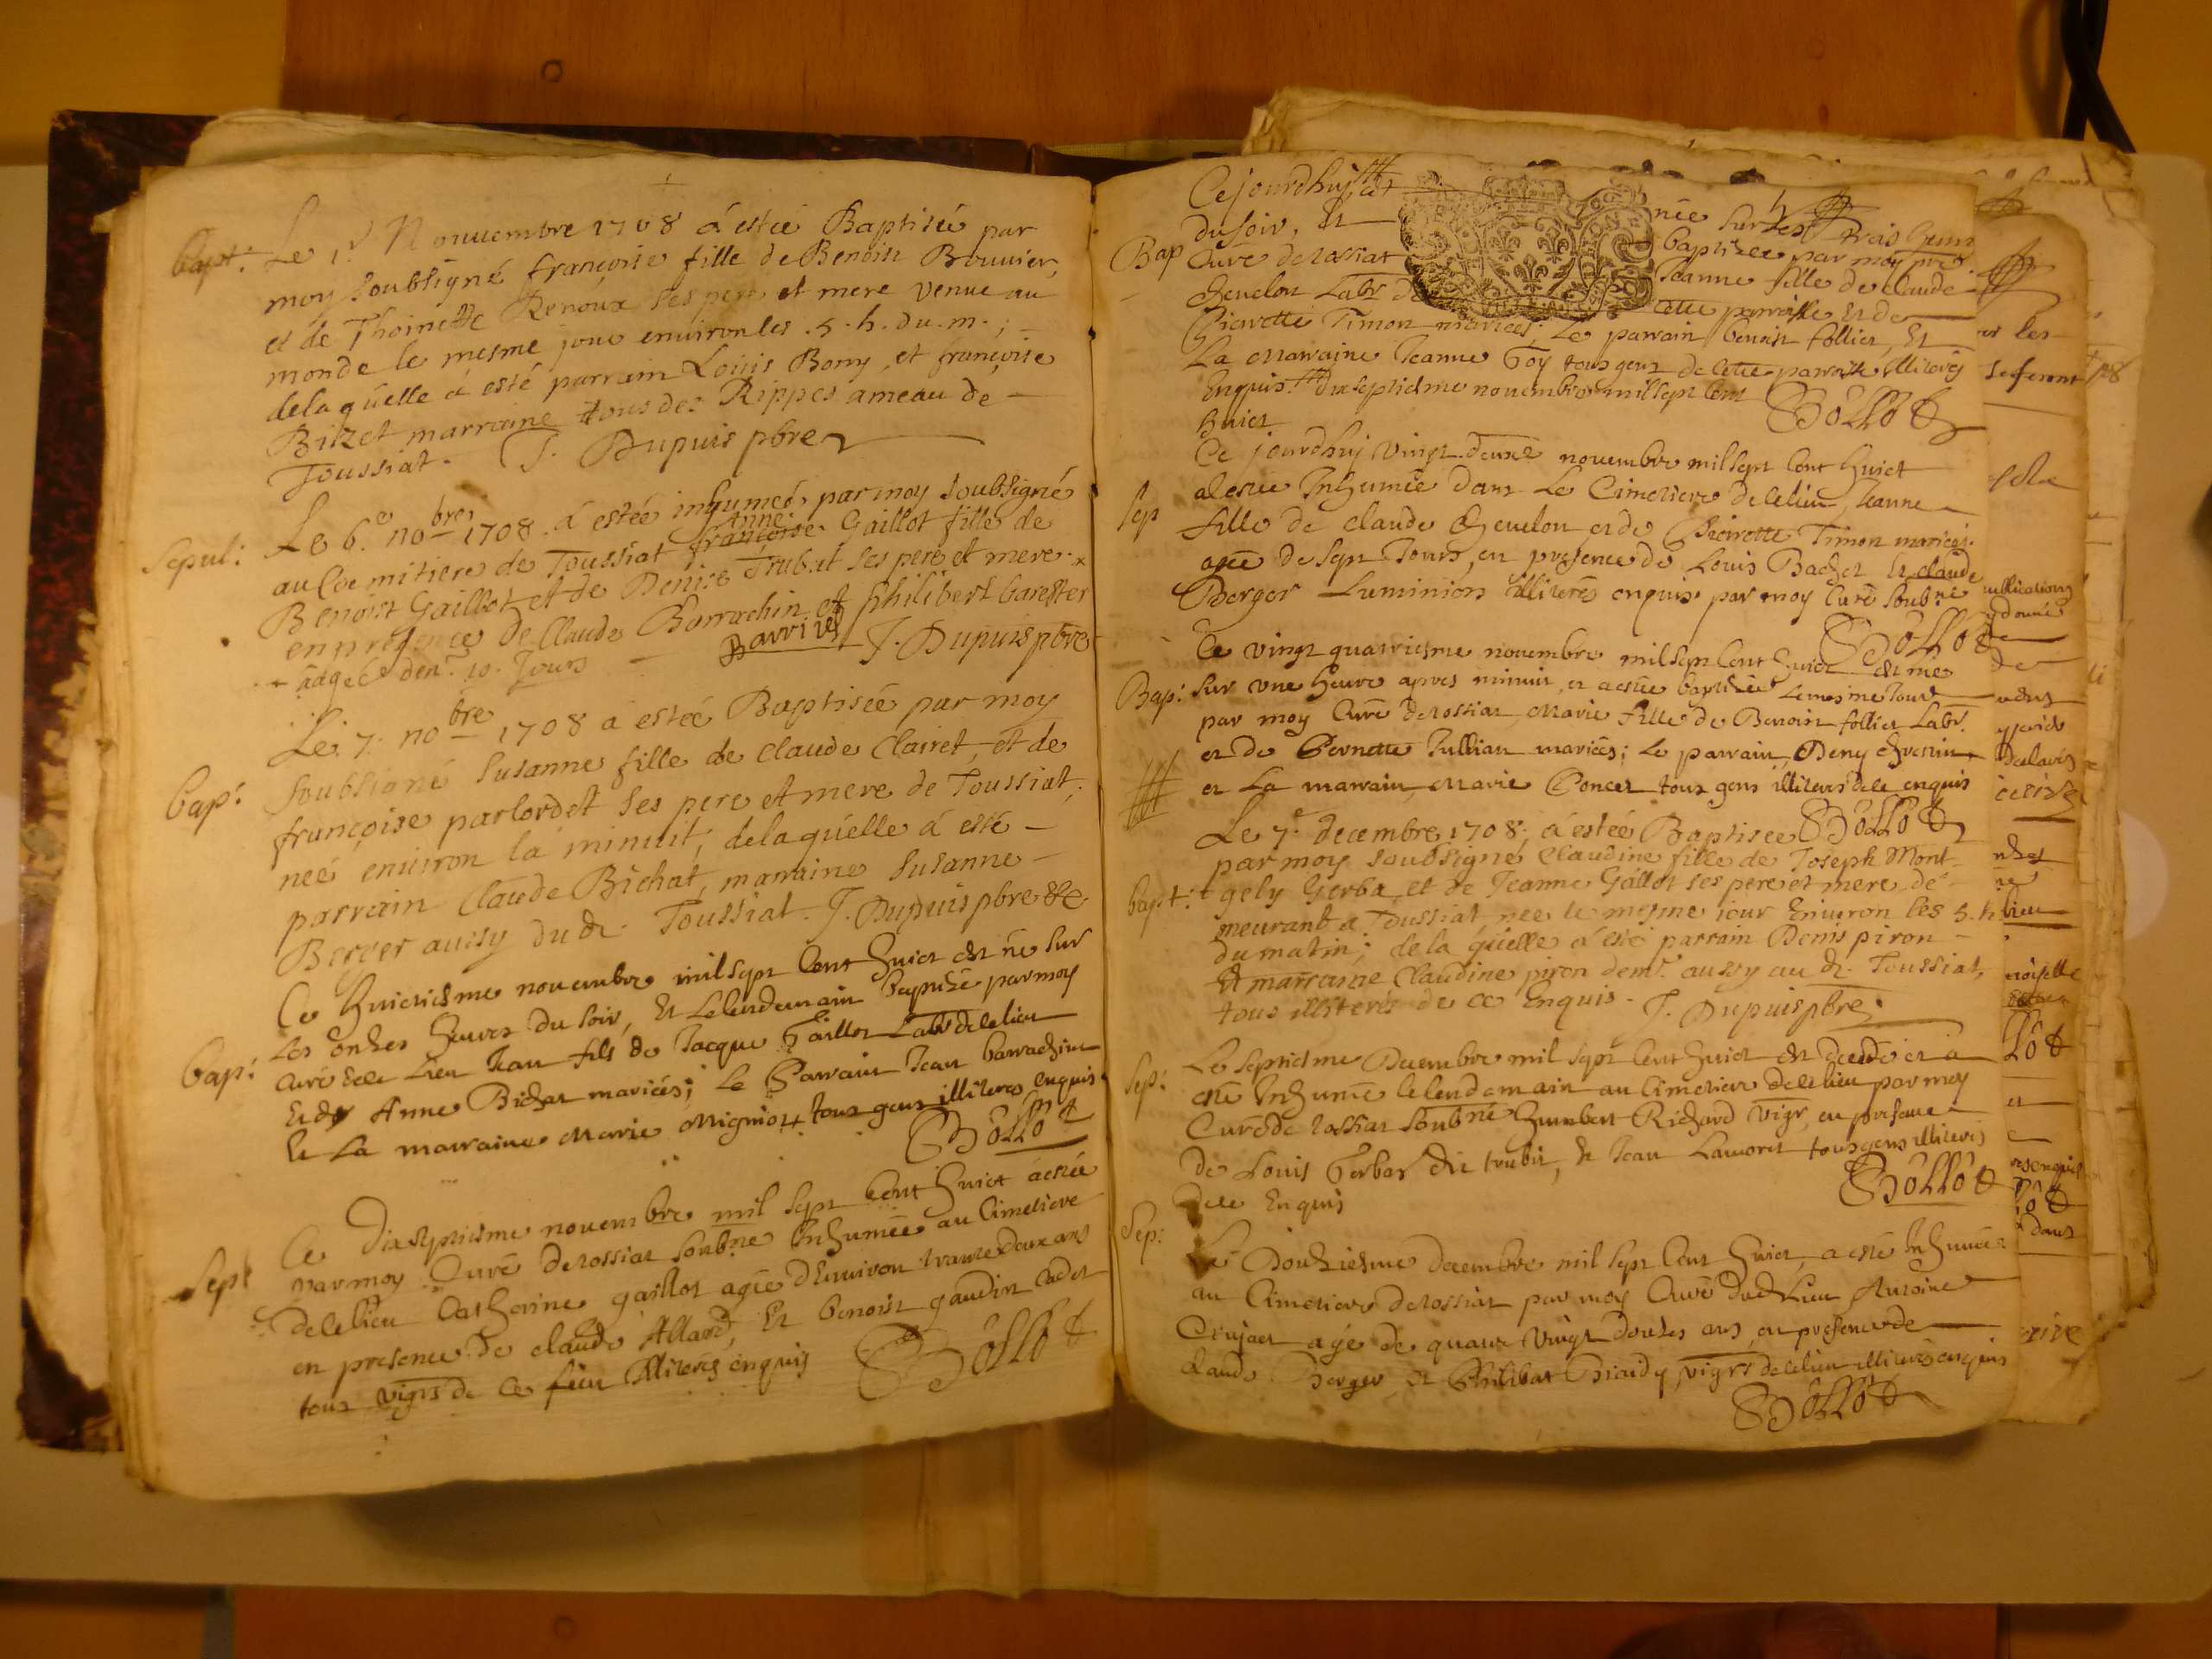 Bapt: Le 1r Nouuembre 1708 á estée Baptisée par
moy soubsigné françoise fille de Benoist Brouuier,
et de Thoinette Renoux ses pere et mere venue au
monde le mesme jour enuiron les .5.h. du.m.;
delaqüelle á esté parrain Loüis Bony, et françoise
Bizet marraine tous des Rippes ameau de
Toussiat. J. Dupuis pbre
Sepul: Le 6.e nobre 1708. á estée inhumeé par moy soubsigné
Anne
au Coemitiere de Toussiat françoise Gaillot fille de
Benoist Gaillot et de Denise Trubit ses pere et mere.
en présence de Claude Borrachin et philibert Carester
âdgeé denn. 10. Jours Barriué J. Dupuis pbre
Le 7. nobre 1708 á estée Baptisée par moy
Bap: soubsigné Susanne fille de Claude Clairet, et de
françoise parlordet ses pere et mere de Toussiat,
neé enuiron la minuit, delaqüelle á esté
parrain Claude Bichat, marraine Susanne
Berger aussy du d. Toussiat. J. Dupuis pbre
Ce huictiesme nouembre mil sept cent huict est né sur
les onzes heures du soir, et le lendemain baptizé par moy
Bap: curé de ce lieu Jean fils de Jacque Gaillot Labr de ce lieu
et de Anne Bichat mariés; le Parrain Jean barrachin
et La marraine Marie Mignot tous gens illiteres enquis
Ce Dixseptiesme nouembre mil sept cent huict a estée
Sept par moy Curé de tossiat soubné Inhumée au Cimetiere
de ce lieu Catherine gaillot agée d'Enuiron trante deux ans
en presence de claude Allard, et benoist gaudin cadet
tous vigrs de ce lieu illiterés enquis
Ce jourdhuy
née sur les trois heures
du soir, et
baptizée par moy
Bap Curé de tossiat
Jeanne fille de claude
Cheuelon Labr de
cette parroisse et de
Pierrette Timon mariés. Le parrain benoist follier, et
La Marraine Jeanne Goy tous gens de cette parroisse illiterés
Enquis. Dixseptiesme nouembre mil sept cent
huict
Ce jourdhuy vingt deuxe nouembre mil sept cent huict
Sep a estée Inhumée dans Le Cimetiere de ce lieu, Jeanne
fille de claude Cheuelon et de Pierrette Timon mariés
agée de sept Jours, en presence de Louis Bachet et claude
Berger Luminiers illiterés enquis par moy Curé soubné
Ce vingt quatriesme nouembre mil sept cent huict est née
Bap: sur une heure apres minuit, et a estée baptizée le mesme Jour
par moy Curé de tossiat, Marie fille de Benoist follier Labr.
et de Pernette Jullian mariés; Le parrain Deny
et La marrain Marie Poncet tous gens illiterés de ce enquis
Le 7e decembre 1708; á estée Baptisée
par moy soubsigné Claudine fille de Joseph Mont
bapt: gely Gerba et de Jeanne Gallot ses pere et mere de
meurant á Toussiat neé le mesme jour enuiron les 5. h
du matin; delaqüelle á esté parrain Denis piron
et marraine Claudine piron demt. aussy au d. Toussiat,
tous illiterés de ce Enquis. J. Dupuis pbre
Sep: Le septiesme Decembre mil sept cent huict est decedé et a
esté Inhumé le lendemain au Cimetiere de ce lieu par moy
Curé de tossiat soubné humbert Richard vigr, en presence
de Louis Gerbas dit trubit, et Jean Lamoret tous gens illiterés
de ce Enquis
Sep: Le Douziesme decembre mil sept cent huict, a esté Inhumé
au Cimetiere de tossiat par moy Curé dud Lieu Antoine
Crujaet agé de quatre vingt douzes ans, en presence de
claude Berger et Philibert vigrs de ce lieu illiterés enquis